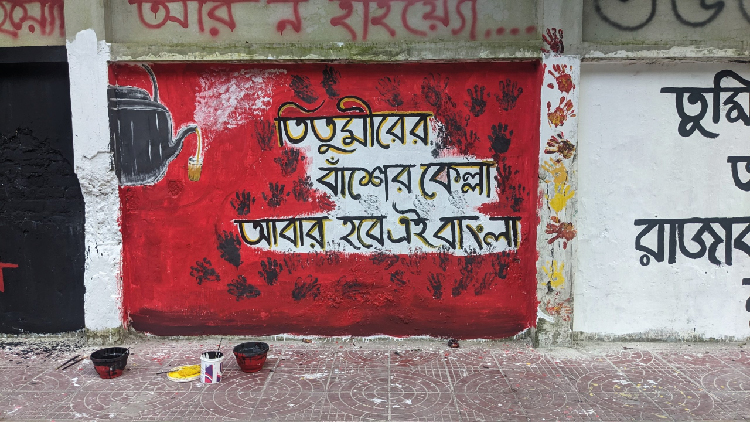 আর না হাইয়ো....
তিতুমীরের
বাঁশের কেল্লা
আবার হবে এই বাংলা
তুমি
রাজাকা